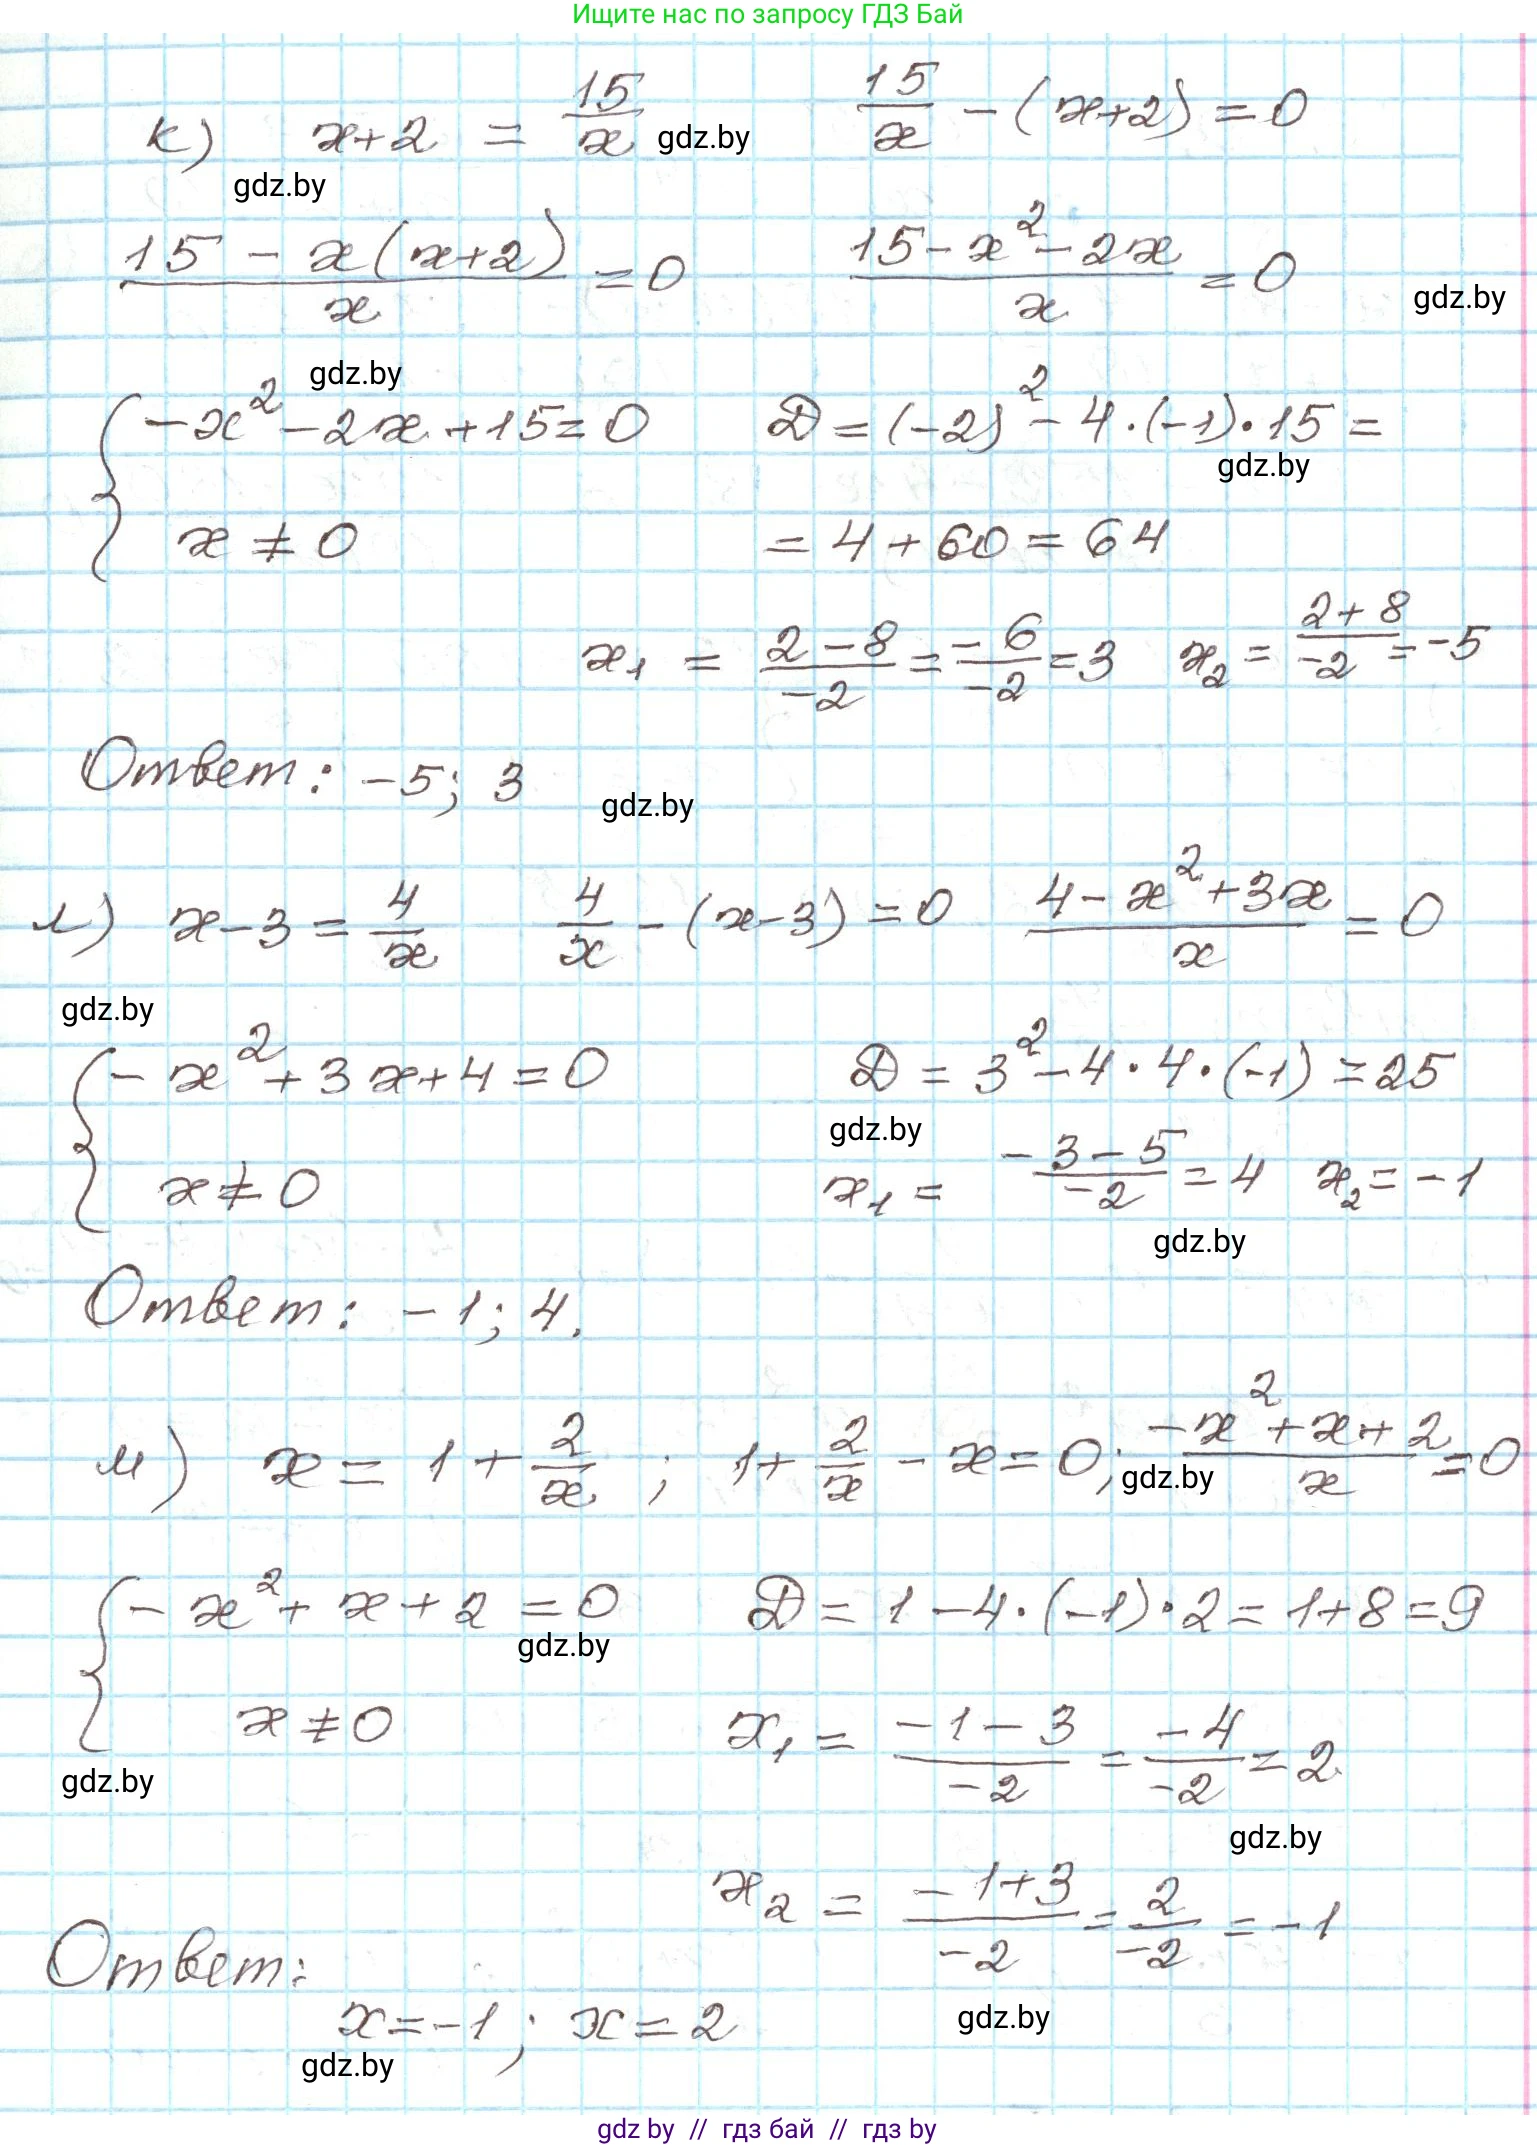 Ищите нас по запросу ГДЗ Бай
к) x+2 = 15/x gdz.by 15/x - (x+2) = 0
gdz.by
(15 - x(x+2))/x = 0 (15 - x² - 2x)/x = 0
gdz.by
gdz.by
{ -x² - 2x + 15 = 0 D = (-2)² - 4·(-1)·15 =
gdz.by
x ≠ 0 = 4 + 60 = 64
x₁ = (2 - 8)/-2 = -6/-2 = 3 x₂ = (2 + 8)/-2 = -5
Ответ: -5; 3
gdz.by
л) x - 3 = 4/x 4/x - (x - 3) = 0 (4 - x² + 3x)/x = 0
gdz.by
{ -x² + 3x + 4 = 0 D = 3² - 4·4·(-1) = 25
gdz.by
x ≠ 0 x₁ = (-3 - 5)/-2 = 4 x₂ = -1
gdz.by
Ответ: -1; 4.
м) x = 1 + 2/x ; 1 + 2/x - x = 0; (-x² + x + 2)/x = 0
gdz.by
{ -x² + x + 2 = 0 D = 1 - 4·(-1)·2 = 1 + 8 = 9
gdz.by
x ≠ 0 x₁ = (-1 - 3)/-2 = -4/-2 = 2
gdz.by
gdz.by
x₂ = (-1 + 3)/-2 = 2/-2 = -1
Ответ:
x = -1 ; x = 2
gdz.by
gdz.by
gdz by // гдз бай // гдз by